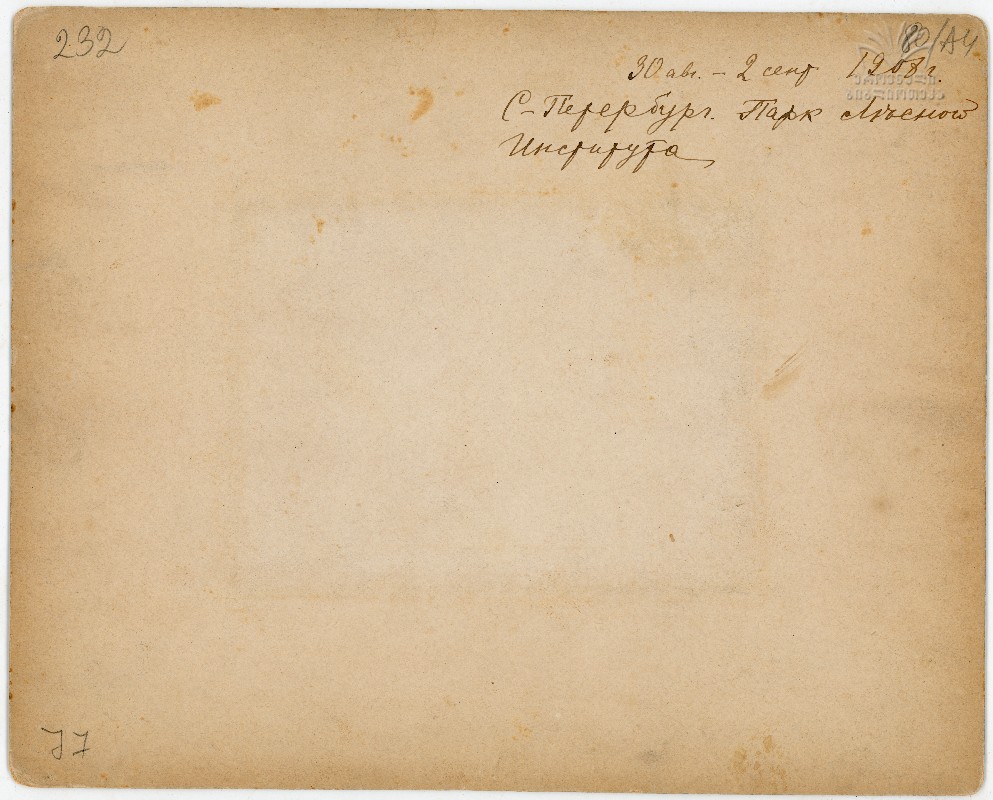 232
80/А4
30 авг. – 2 сент 1908 г.
С-Петербург. Парк Лѣсной
Института